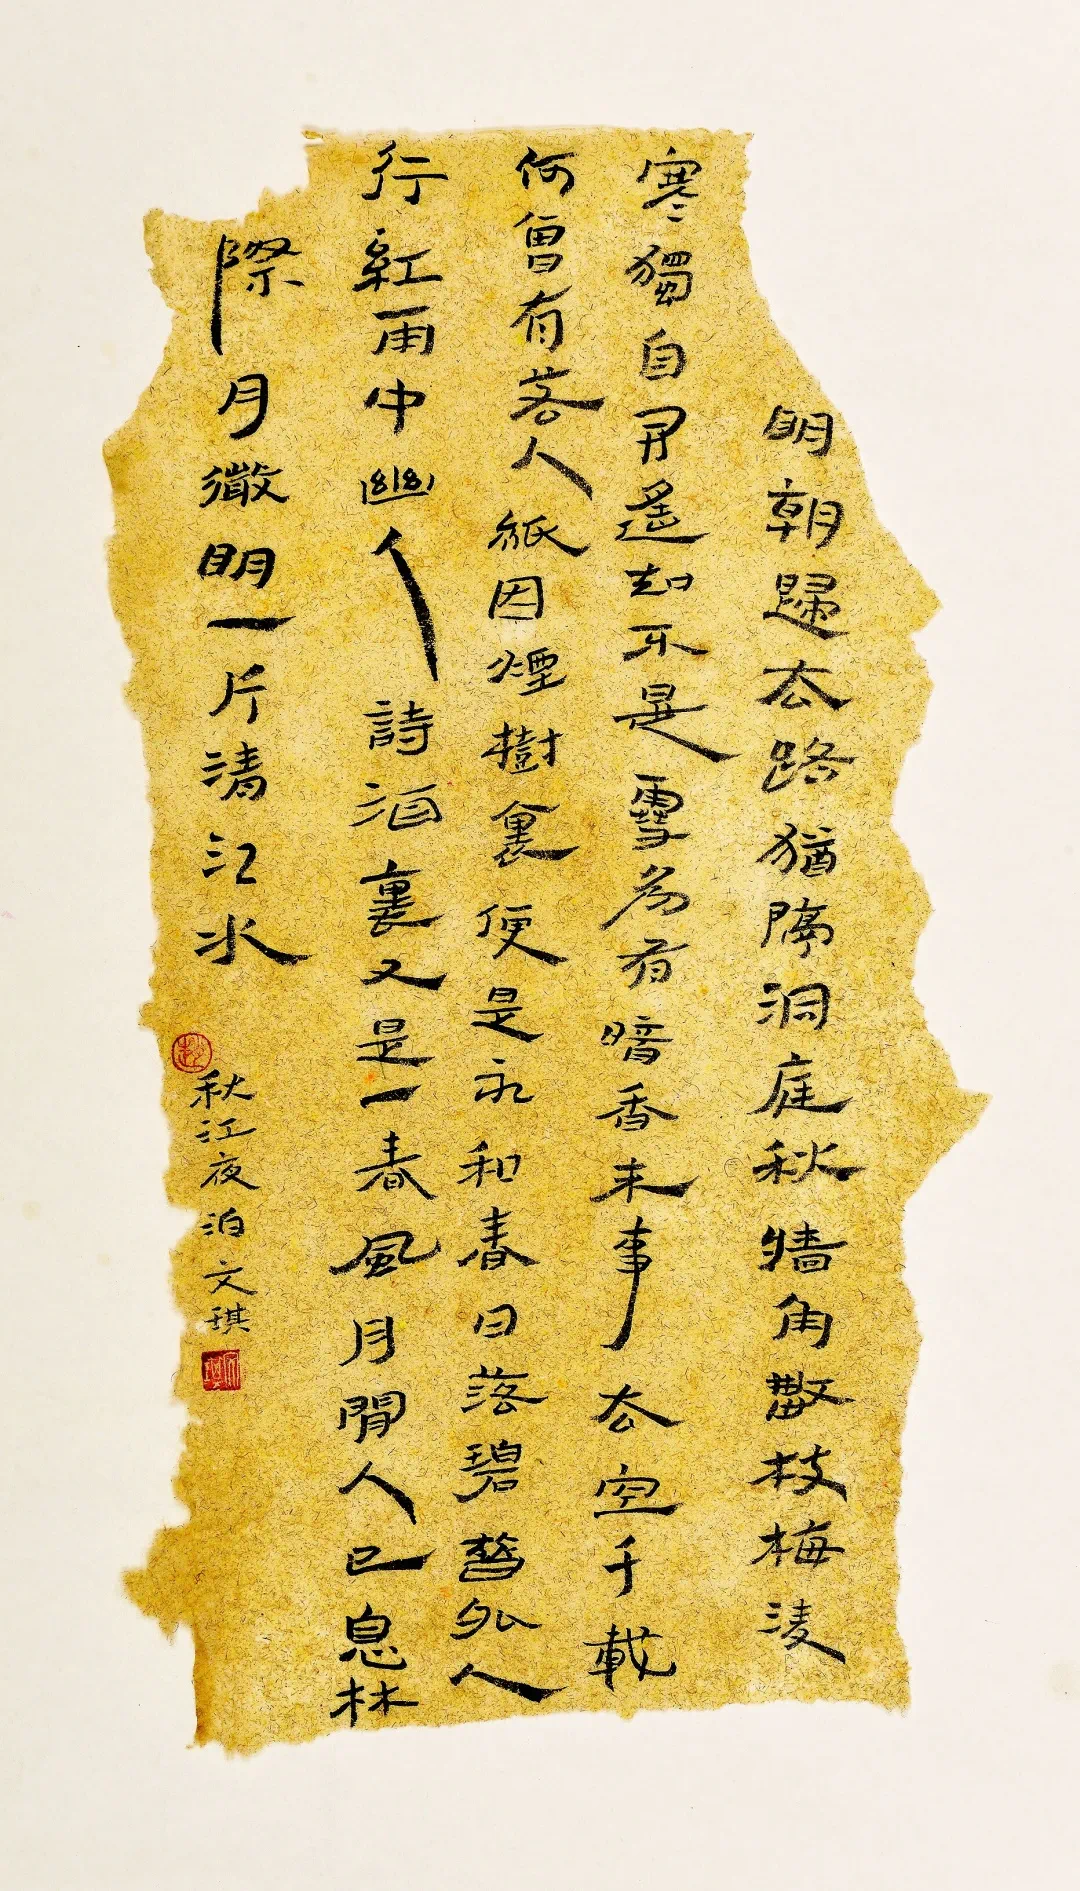 明朝歸去路猶隔洞庭秋牆角數枝梅凌
寒獨自開遙知不是雪為有暗香來事去空千載
何曾有落人紙因煙樹裏便是永和春日落碧簪外人
行紅雨中幽人詩酒裏又是一春風月閒人已息林
際月微明一片清江水
秋江夜泊文琪